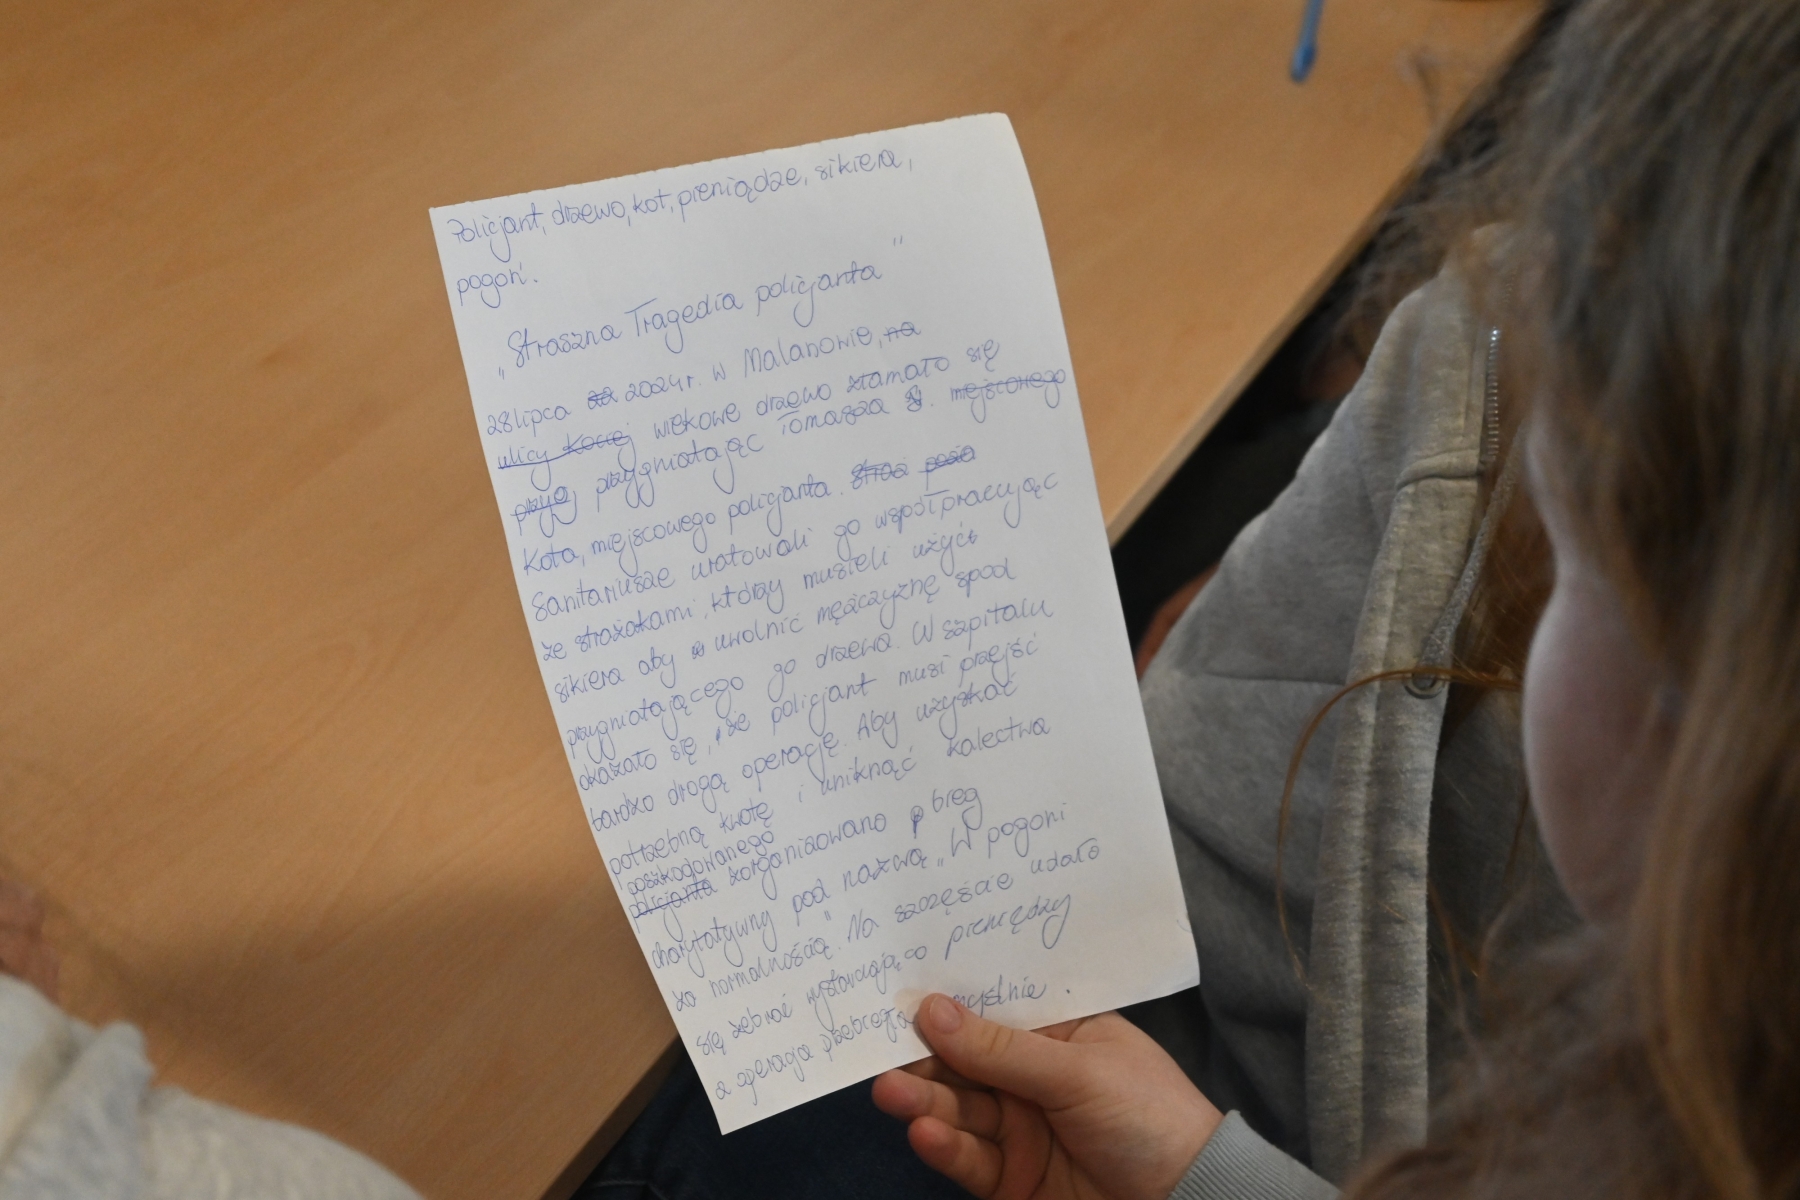 Policjant, drzewo, kot, pieniądze, sikiera,
pogoń.
„Straszna Tragedia policjanta"
28 lipca 2024r. w Malanowie, na
ulicy Kociej wiekowe drzewo złamało się
przyg przygniatając Tomasza miejscowego
Kota, miejscowego policjanta.
Sanitariusze uratowali go współpracując
ze strażakami, którzy musieli użyć
sikiera aby uwolnić mężczyznę spod
przygniatającego go drzewa. W szpitalu
okazało się, że policjant musi przejść
bardzo drogą operację. Aby uzyskać
potrzebną kwotę i uniknąć kalectwa
poszkodowanego
policjanta zorganizowano bieg
charytatywny pod nazwą „W pogoni
za normalnością". Na szczęście udało
się zebrać wystarczająco pieniędzy
a operacja przebiegła